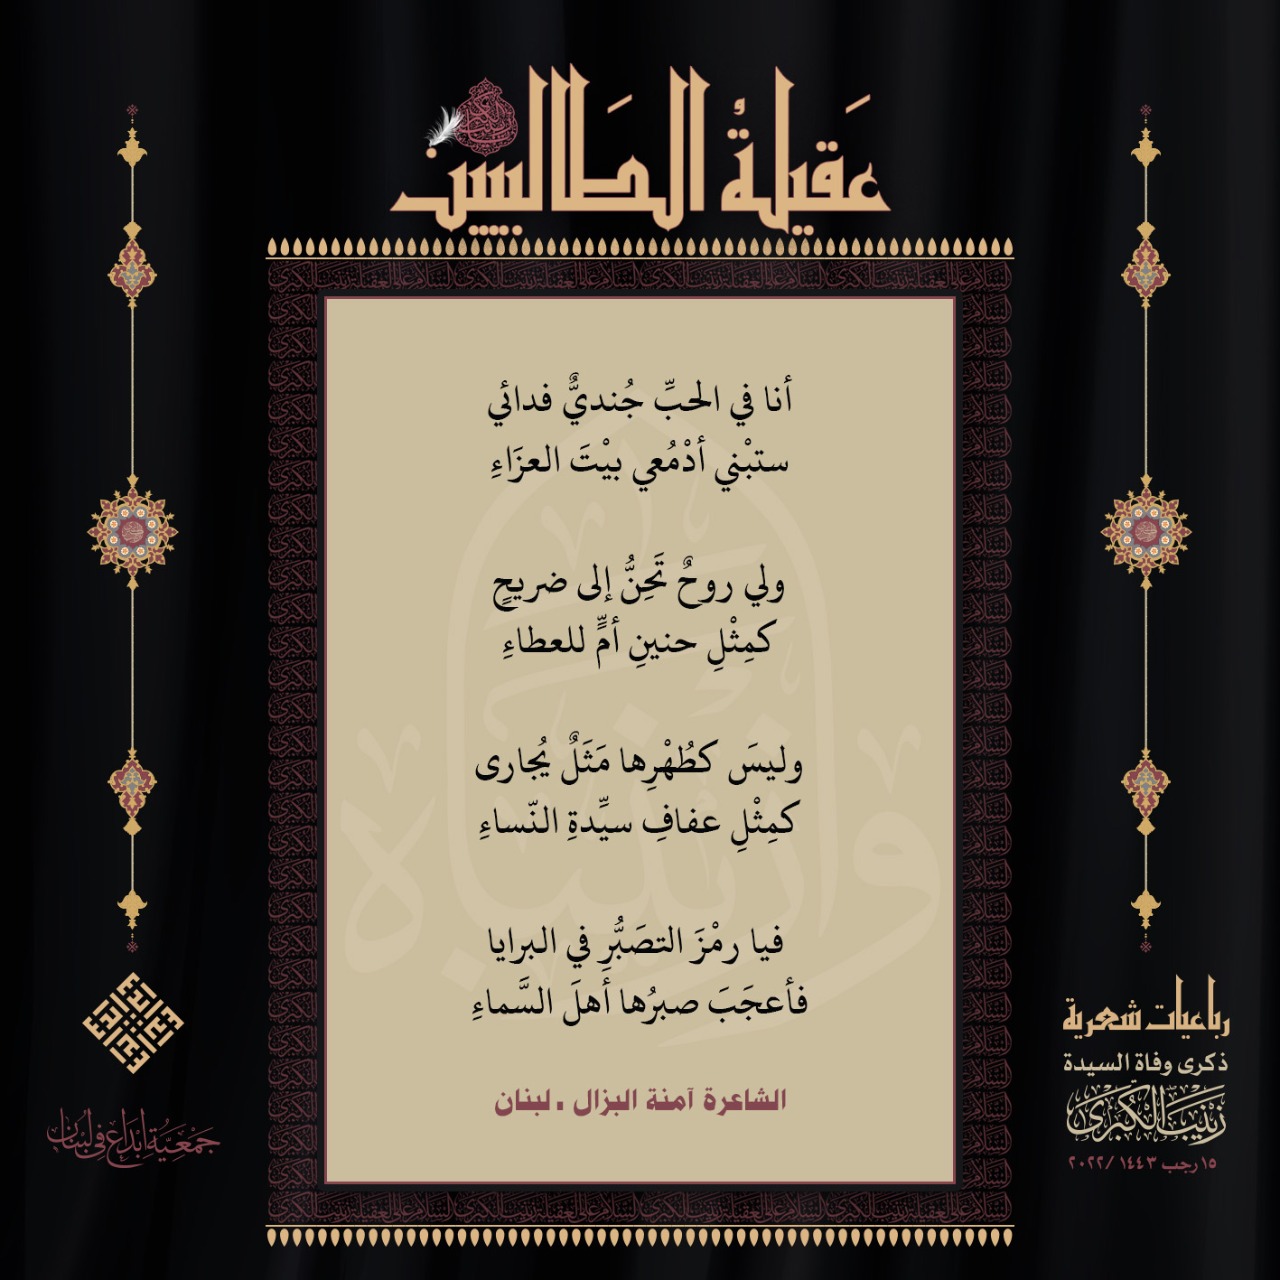 عَقيلةُ الطَالبيين
أنا في الحبِّ جُنديٌّ فدائي
ستبْني أدْمُعي بيْتَ العزَاءِ
ولي روحٌ تَحِنُّ إلى ضريحٍ
كمِثْلِ حنينِ أمٍّ للعطاءِ
وليسَ كطُهْرِها مَثَلٌ يُجارى
كمِثْلِ عفافِ سيِّدةِ النّساءِ
فيا رمْزَ التصَبُّرِ في البرايا
فأعجَبَ صبرُها أهلَ السَّماءِ
الشاعرة آمنة البزال . لبنان
رباعيات شعرية
ذكرى وفاة السيدة
زَيْنَبَ الْكُبْرَى
١٥ رجب ١٤٤٣ /٢٠٢٢
جَمْعِيَّةُ إبْدَاع فِي لُبْنَان
وا زينباه